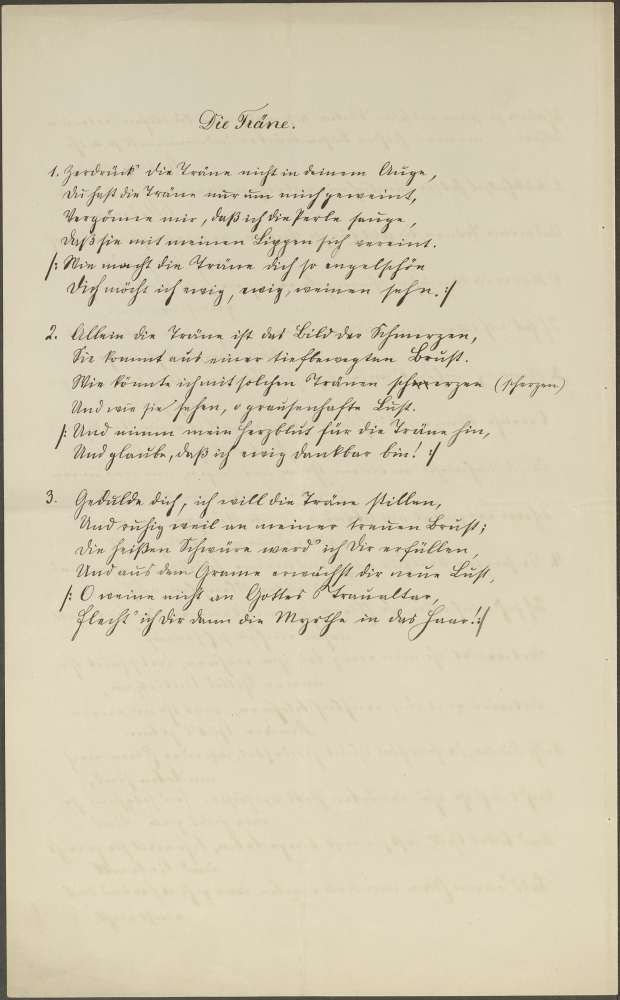 Die Träne.
1. Zerdrück' die Träne nicht in deinem Auge,
Du hast die Träne nur um mich geweint,
Vergönne mir, daß ich die Perle sauge,
Daß sie mit meinen Lippen sich vereint.
/: Wie macht die Träne dich so engelschön
Dich möcht ich ewig, ewig, weinen sehn. :/
2. Allein die Träne ist das Bild der Schmerzen,
Sie kommt aus einer tiefbewegten Brust.
Wie könnte ich mit solchen Tränen schmerzen (scherzen)
Und wie sie sehen, o grausenhafte Lust.
/: Und nimm mein Herzblut für die Träne hin,
Und glaube, daß ich ewig dankbar bin! :/
3. Gedulde dich, ich will die Träne stillen,
Und ruhig weil an meiner treuen Brust;
Die heißen Schwüre werd' ich Dir erfüllen,
Und aus dem Grame erwächst dir neue Lust,
/: O weine nicht an Gottes Traualtar,
Flecht' ich Dir dann die Myrthe in das Haar! :/